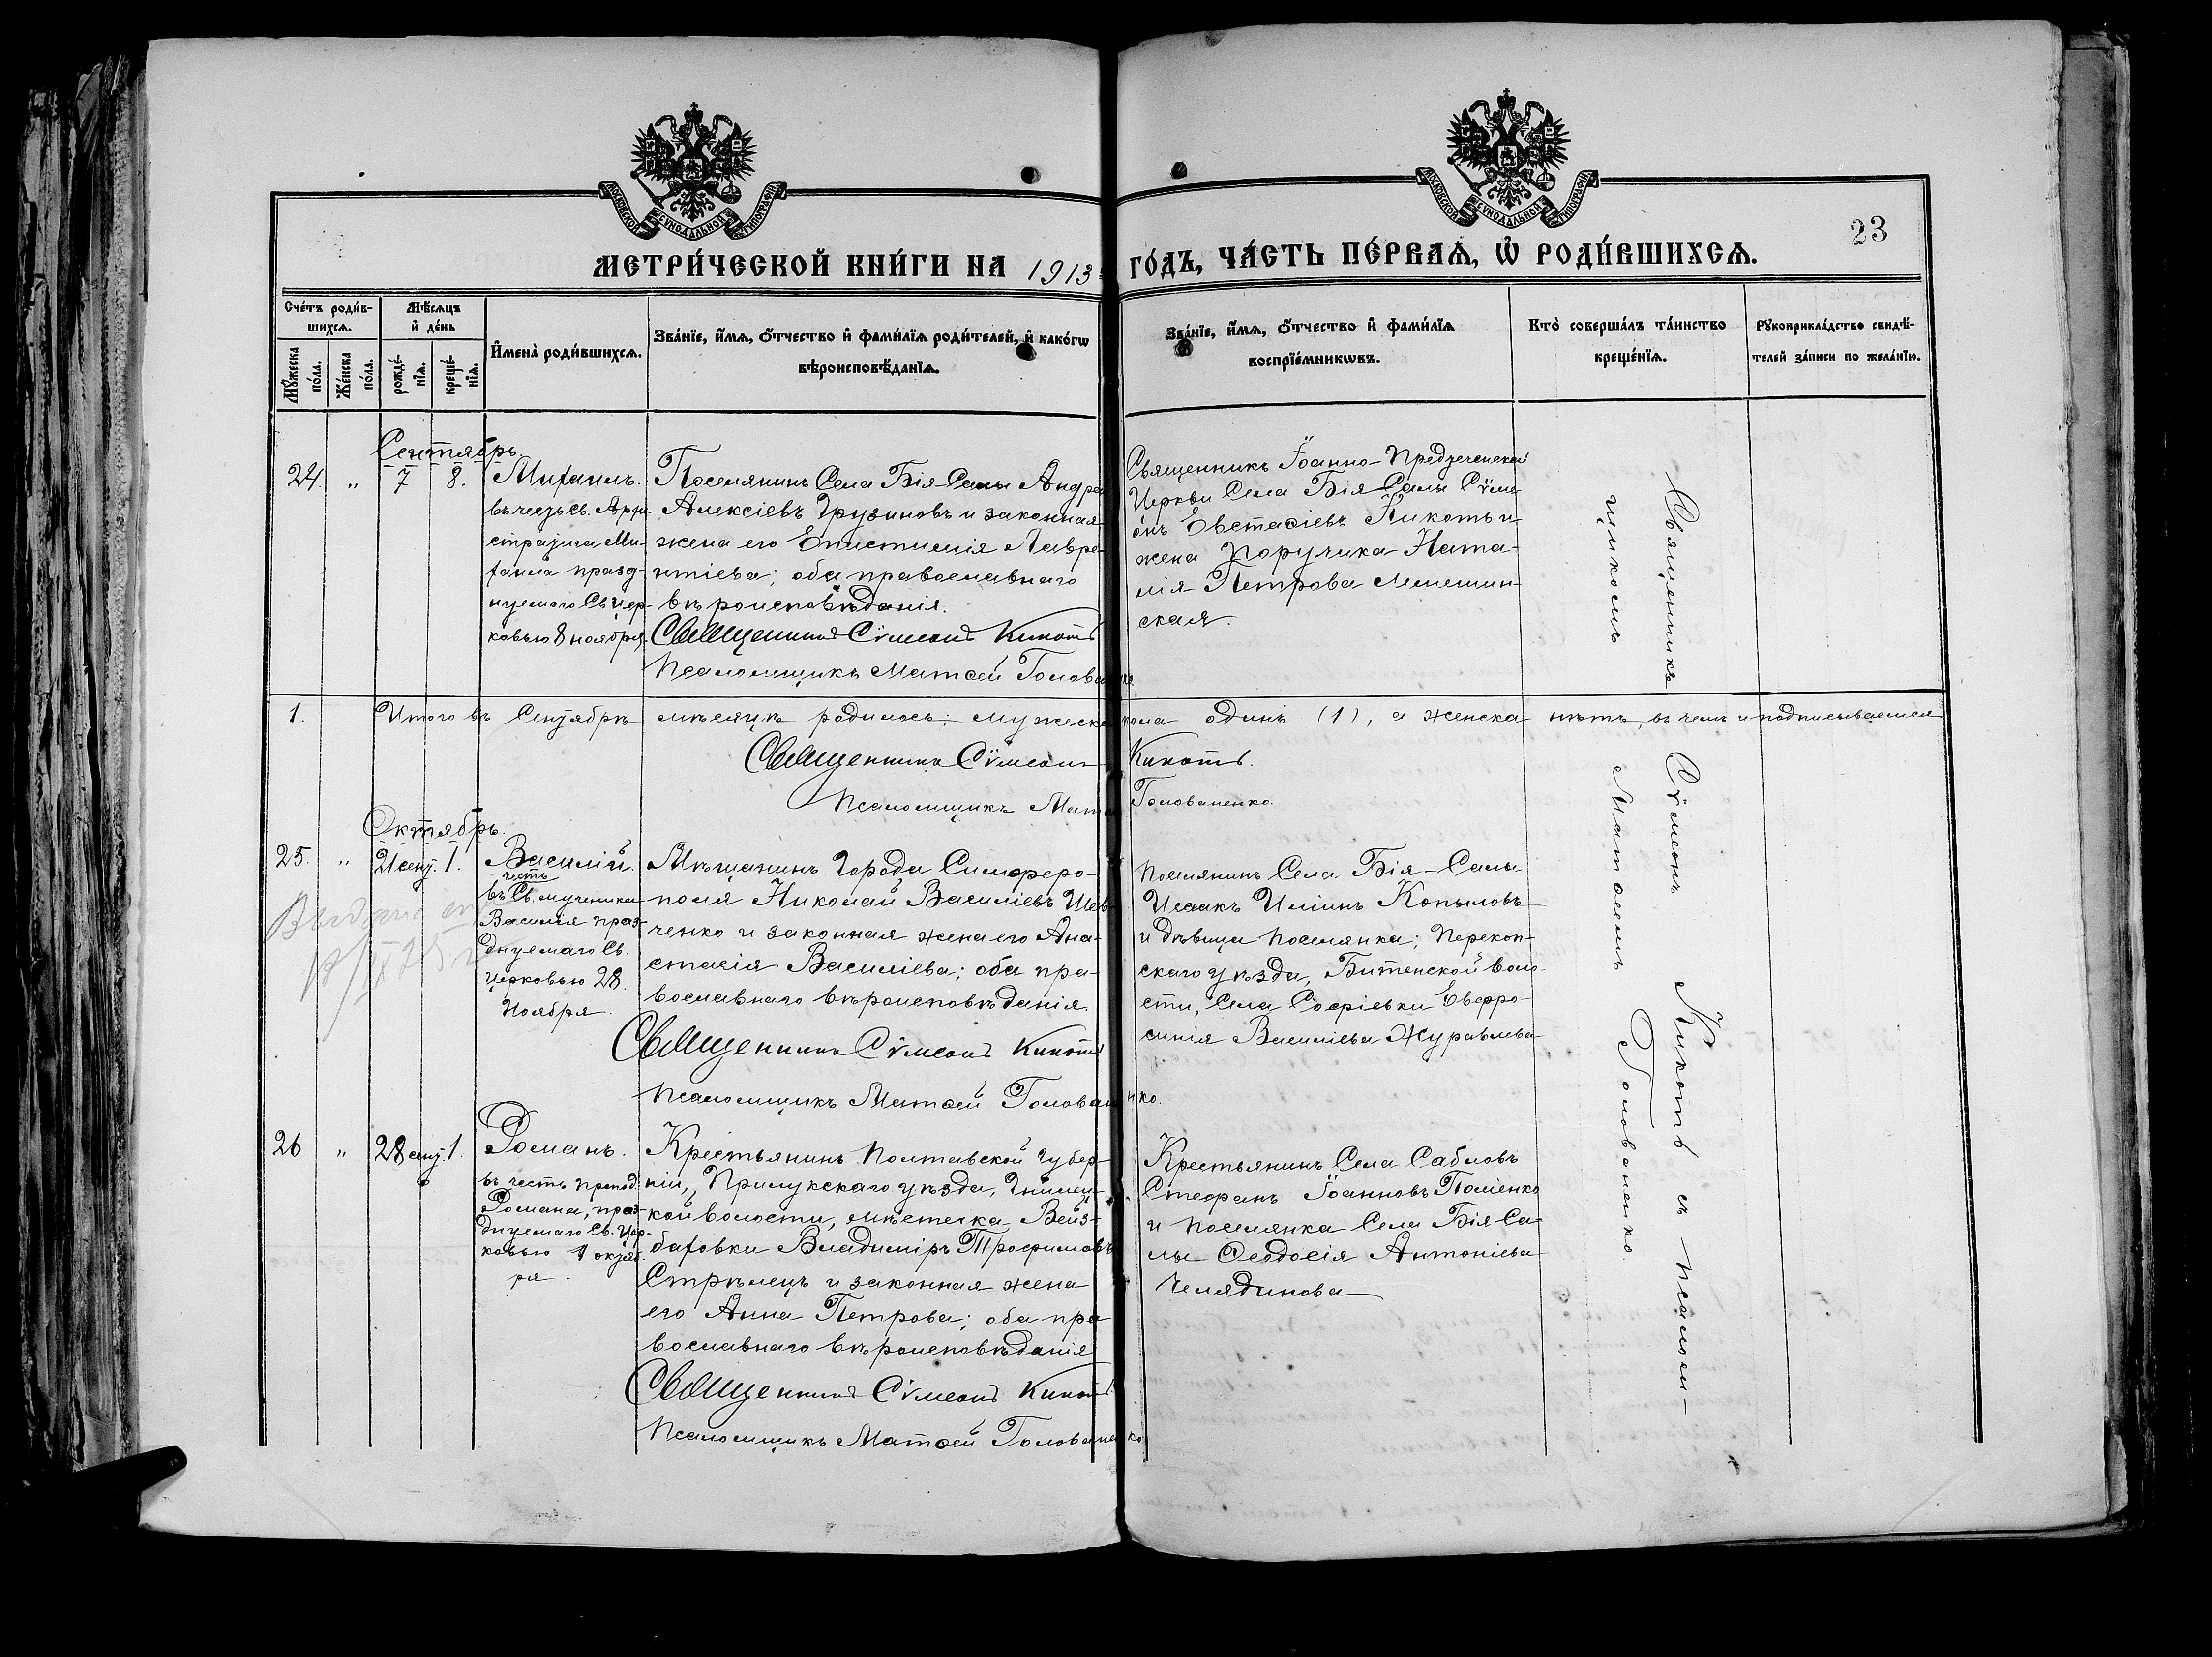 МОСКОВСКОЙ СѴНОДАЛЬНОЙ ТИПОГРАФІИ
МОСКОВСКОЙ СѴНОДАЛЬНОЙ ТИПОГРАФІИ
23
МЕТРИ́ЧЕСКОЙ КНИ́ГИ НА 1913 ГО́ДЪ, ЧА́СТЬ ПЕ́РВАѦ, Ѡ҆ РОДИ́ВШИХСѦ.
Сче́тъ роди́в-
шихсѧ.
Мꙋ́жеска
по́ла.
Же́нска
по́ла.
Мѣ́сѧцъ
и҆ де́нь
рожде́-
нїѧ.
креще́-
нїѧ.
И҆мена̀ роди́вшихсѧ.
Зва́нїе, и҆́мѧ, ѻ҆́тчество и҆ фами́лїѧ роди́телей, и҆ како́гѡ
вѣроисповѣ́данїѧ.
Зва́нїе, и҆́мѧ, ѻ҆́тчество и҆ фами́лїѧ
воспрїе́мникѡвъ.
Кто̀ соверша́лъ та́инство
креще́нїѧ.
Рꙋкоприкла́дство свидѣ́-
телей за́писи по жела́нїю.
Сентябрь
24. „ 7 8.
Михаилъ.
въ честь Св. Архи-
стратига Ми-
хаила празд-
нуемаго Св. Цер-
ковью 8 ноября.
Поселянинъ Села Бія-Салы Андрей
Алексіевъ Грузиновъ и законная
жена его Епистимія Лавре-
нтіева; оба православнаго
вѣроисповѣданія.
Священникъ Сѵмеонъ Кикоть
Псаломщикъ Матѳей Голованенко.
Священникъ Іоанно-Предтеченской
Церкви Села Бія Салы Сѵме-
онъ Евстаѳіевъ Кикоть и
жена Поручика Ната-
лія Петрова
ская.
1. Итого въ Сентябрѣ мѣсяцѣ родилось: мужеска пола одинъ (1), а женска нѣтъ, въ чемъ и подписываемся
Священникъ Сѵмеонъ Кикоть.
Псаломщикъ Матѳей Голованенко.
Октябрь.
25. „ 21 сент. 1.
Василій.
въ честь Св. мученика
Василія праз-
днуемаго Св.
Церковью 28
Ноября.
Мѣщанинъ Города Симферо-
поля Николай Василіевъ Шев-
ченко и законная жена его Ана-
стасія Василіева; оба пра-
вославнаго вѣроисповѣданія.
Священникъ Сѵмеонъ Кикоть
Псаломщикъ Матѳей Голованенко.
Поселянинъ Села Бія-Салы
Исаакъ Иліинъ Копыловъ
и дѣвица поселянка; Перекоп-
скаго уѣзда, Битенской воло-
сти, Села Софіевки Евфро-
синія Василіева Журавлева
26 „ 28 сент. 1.
Романъ.
въ честь препод.
Романа, праз-
днуемаго Св. Цер-
ковью 1 октяб-
ря.
Крестьянинъ Полтавской Губер-
ніи, Прилукскаго уѣзда,
кой волости, мѣстечка Вейз-
баховки Владиміръ Трофимовъ
Стрѣлецъ и законная жена
его Анна Петрова; оба пра-
вославнаго вѣроисповѣданія
Священникъ Сѵмеонъ Кикоть
Псаломщикъ Матѳей Голованенко
Крестьянинъ Села Сабловъ
Стефанъ Іоанновъ Паліенко
и поселянка Села Бія Са-
лы Ѳеодосія Антоніева
Челядинова
Священникъ Сѵмеонъ Кикоть съ псалом-
щикомъ Матѳеемъ Голованенко.